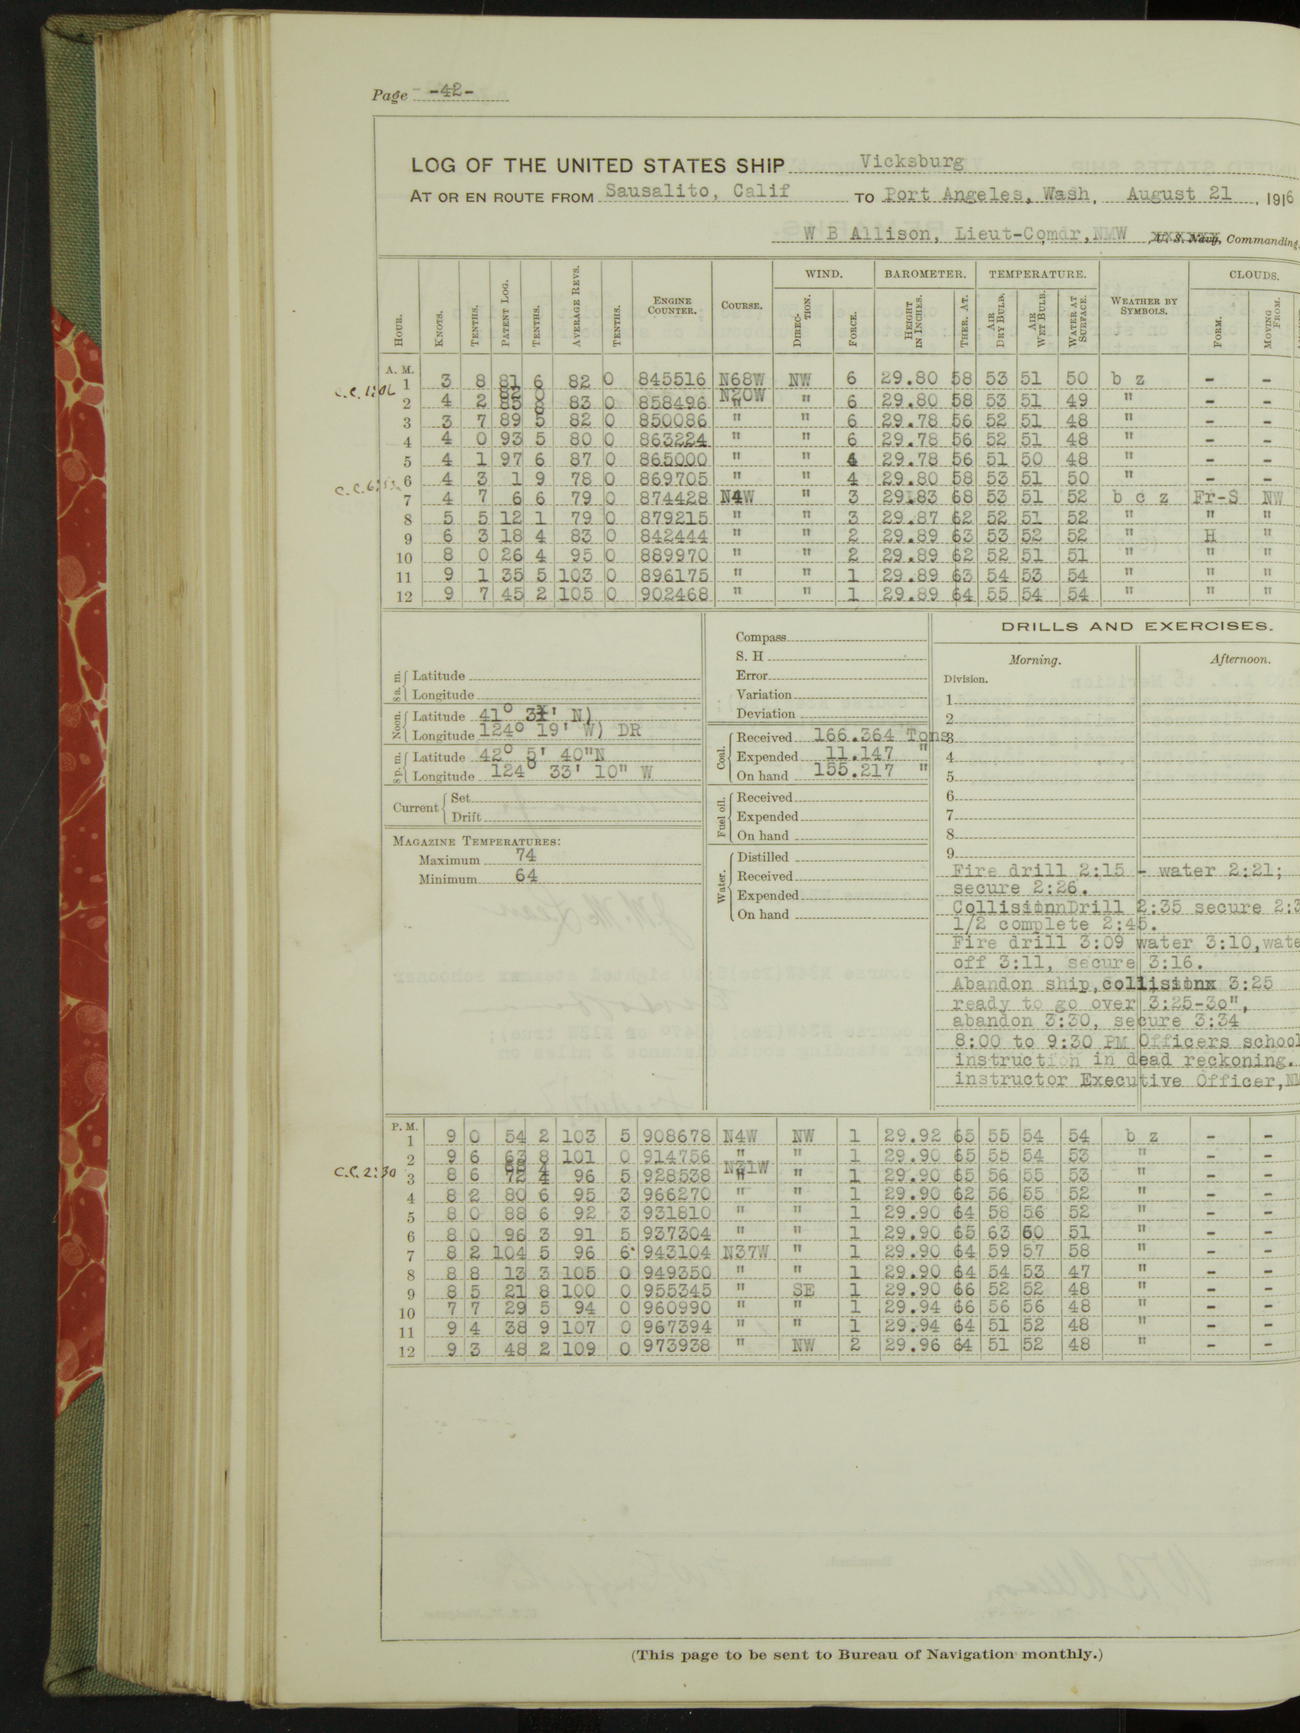 Page -42-
LOG OF THE UNITED STATES SHIP Vicksburg
AT OR EN ROUTE FROM Sausalito, Calif TO Port Angeles, Wash, August 21, 1916
W B Allison, Lieut-Comdr, NMW, U. S. Navy, Commanding
WIND. BAROMETER. TEMPERATURE. CLOUDS.
HOUR. KNOTS. TENTHS. PATENT LOG. TENTHS. AVERAGE REVS. TENTHS. ENGINE COUNTER. COURSE. DIRECTION. FORCE. HEIGHT IN INCHES. THER. AT. AIR DRY BULB. AIR WET BULB. WATER AT SURFACE. WEATHER BY SYMBOLS. FORM. MOVING FROM.
A. M.
1 3 8 81 6 82 0 845516 N68W NW 6 29.80 58 53 51 50 b z - -
C.C. 1:06 82 0 N20W
2 4 2 85 8 83 0 858496 " " 6 29.80 58 53 51 49 " - -
3 3 7 89 5 82 0 850086 " " 6 29.78 56 52 51 48 " - -
4 4 0 93 5 80 0 863224 " " 6 29.78 56 52 51 48 " - -
5 4 1 97 6 87 0 865000 " " 4 29.78 56 51 50 48 " - -
6 4 3 1 9 78 0 869705 " " 4 29.80 58 53 51 50 " - -
7 4 7 6 6 79 0 874428 N4W " 3 29.83 68 53 51 52 b c z Fr-S NW
8 5 5 12 1 79 0 879215 " " 3 29.87 62 52 51 52 " " "
9 6 3 18 4 83 0 842444 " " 2 29.89 63 53 52 52 " H "
10 8 0 26 4 95 0 889970 " " 2 29.89 62 52 51 51 " " "
11 9 1 35 5 103 0 896175 " " 1 29.89 63 54 53 54 " " "
12 9 7 45 2 105 0 902468 " " 1 29.89 64 55 54 54 " " "
8 a. m. Latitude
Longitude
Noon. Latitude 41° 31' N)
Longitude 124° 19' W) DR
8 p. m. Latitude 42° 5' 40"N
Longitude 124° 33' 10" W
Current Set
Drift
MAGAZINE TEMPERATURES:
Maximum 74
Minimum 64
Compass
S. H
Error
Variation
Deviation
Coal. Received 166.364 Tons
Expended 11.147 "
On hand 155.217 "
Fuel oil. Received
Expended
On hand
Water. Distilled
Received
Expended
On hand
DRILLS AND EXERCISES.
Morning. Afternoon.
Division.
1
2
3
4
5
6
7
8
9
Fire drill 2:15 - water 2:21;
secure 2:26.
CollisionnDrill 2:35 secure 2:3
1/2 complete 2:45.
Fire drill 3:09 water 3:10,wate
off 3:11, secure 3:16.
Abandon ship,collisionx 3:25
ready to go over 3:25-30",
abandon 3:30, secure 3:34
8:00 to 9:30 PM Officers school
instruction in dead reckoning.
instructor Executive Officer,
P. M.
1 9 0 54 2 103 5 908678 N4W NW 1 29.92 65 55 54 54 b z - -
2 9 6 63 8 101 0 914756 " " 1 29.90 65 55 54 53 " - -
C.C. 2:30 68 4 N31W
3 8 6 72 4 96 5 928538 " " 1 29.90 65 56 55 53 " - -
4 8 2 80 6 95 3 966270 " " 1 29.90 62 56 55 52 " - -
5 8 0 88 6 92 3 931810 " " 1 29.90 64 58 56 52 " - -
6 8 0 96 3 91 5 937304 " " 1 29.90 65 63 60 51 " - -
7 8 2 104 5 96 6 943104 N37W " 1 29.90 64 59 57 58 " - -
8 8 8 13 3 105 0 949350 " " 1 29.90 64 54 53 47 " - -
9 8 5 21 8 100 0 955345 " SE 1 29.90 66 52 52 48 " - -
10 7 7 29 5 94 0 960990 " " 1 29.94 66 56 56 48 " - -
11 9 4 38 9 107 0 967394 " " 1 29.94 64 51 52 48 " - -
12 9 3 48 2 109 0 973938 " NW 2 29.96 64 51 52 48 " - -
(This page to be sent to Bureau of Navigation monthly.)